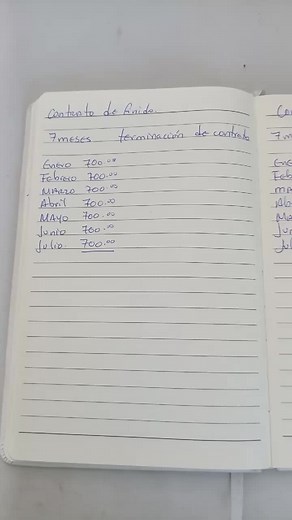 Contrato de finido.
7 meses terminacción de contrato
Enero 700.00
Febrero 700.00
MARZO 700.00
Abril 700.00
MAYO 700.00
Junio 700.00
Julio 700.00